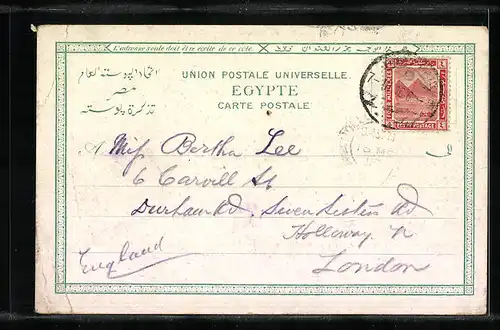 L'adresse seule doit être écrite de ce côté.
UNION POSTALE UNIVERSELLE.
EGYPTE
CARTE POSTALE
اتحاد البوسته العام
مصر
تذكرة بوسته
A Miss Bertha Lee
6 Carvill St
Durham Rd, Seven Sisters Rd
Holloway N
London
England
EGYPT POSTAGE